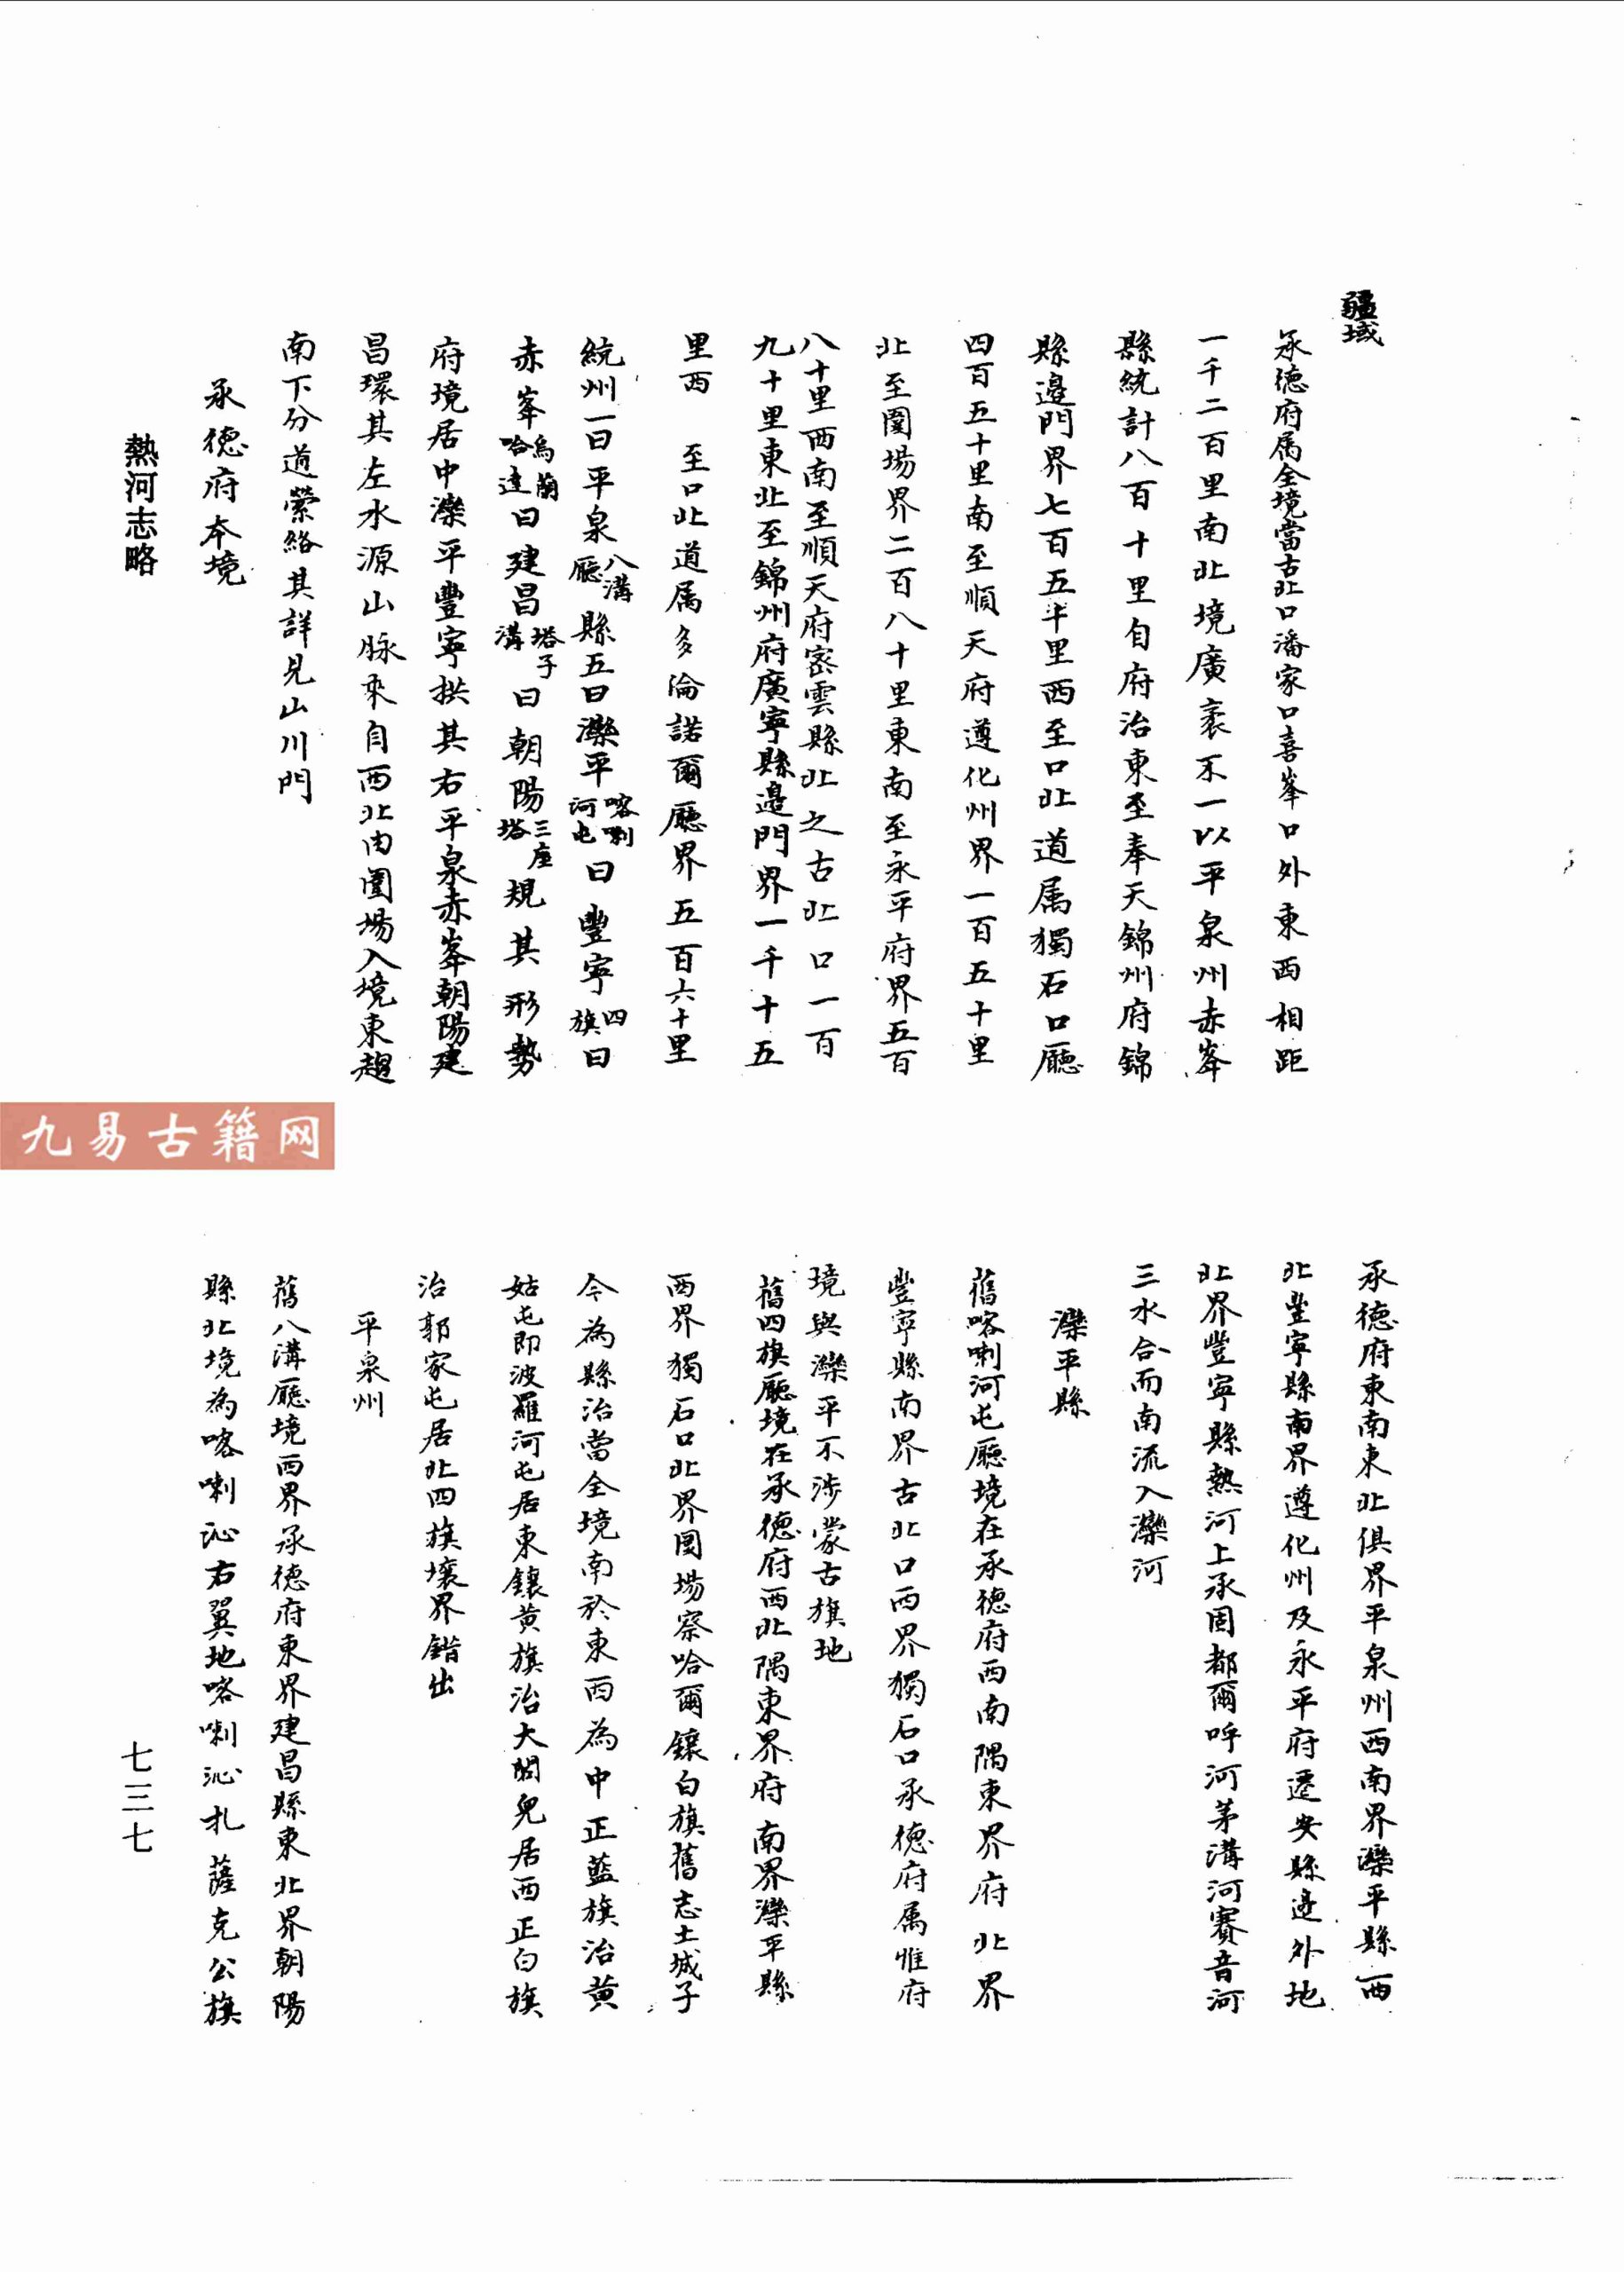 疆域
承德府属全境當古北口潘家口喜峯口外東西相距
一千二百里南北境廣袤不一以平泉州赤峯
縣統計八百十里自府治東至奉天錦州府錦
縣邊門界七百五十里西至口北道属獨石口廳
四百五十里南至順天府遵化州界一百五十里
北至圍場界二百八十里東南至永平府界五百
八十里西南至順天府密雲縣北之古北口一百
九十里東北至錦州府廣寧縣邊門界一千十五
里西 至口北道属多倫諾爾廳界五百六十里
統州一曰平泉八溝廳縣五曰灤平喀喇河屯曰豐寧四旗曰
赤峯烏蘭哈達曰建昌塔子溝曰朝陽三座塔規其形勢
府境居中灤平豐寧拱其右平泉赤峯朝陽建
昌環其左水源山脉來自西北由圍場入境東趨
南下分道縈絡其詳見山川門
承德府本境
熱河志略
九易古籍网
承德府東南東北俱界平泉州西南界灤平縣西
北豐寧縣南界遵化州及永平府遷安縣邊外地
北界豐寧縣熱河上承固都爾呼河茅溝河賽音河
三水合而南流入灤河
灤平縣
舊喀喇河屯廳境在承德府西南隅東界府北界
豐寧縣南界古北口西界獨石口承德府属惟府
境與灤平不涉蒙古旗地
舊四旗廳境在承德府西北隅東界府南界灤平縣
西界獨石口北界圍場察哈爾鑲白旗舊志土城子
今為縣治當全境南於東西為中正藍旗治黄
姑屯即波羅河屯居東鑲黄旗治大閣兒居西正白旗
治郭家屯居北四旗壤界錯出
平泉州
舊八溝廳境西界承德府東界建昌縣東北界朝陽
縣北境為喀喇沁右翼地喀喇沁札薩克公旗
七三七